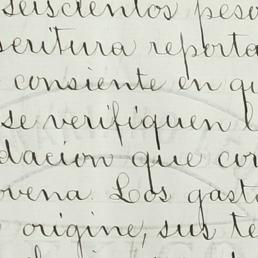 seiscientos peso
scritura reporta
consiente en qu
se verifiquen l
dacion que cor
ovena. Los gasto
origine, sus te